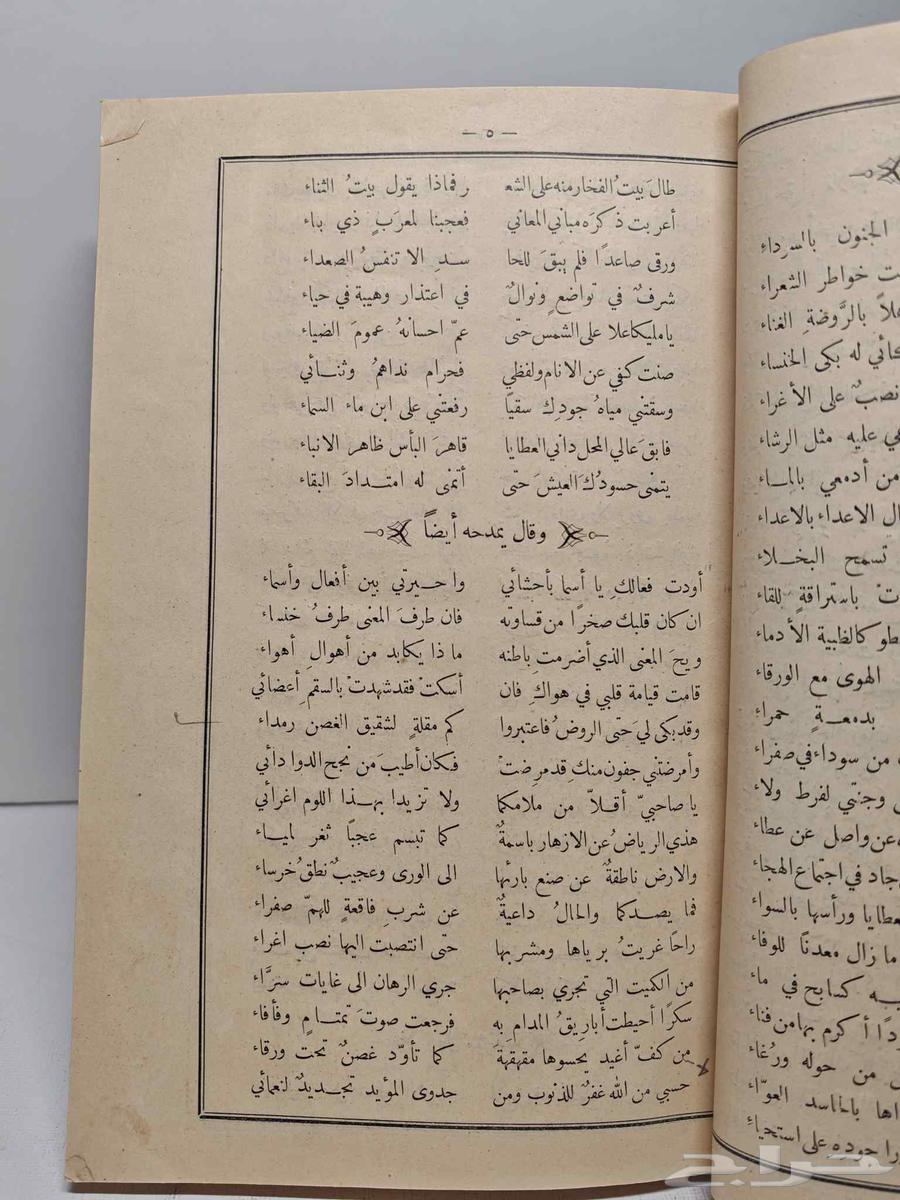 — ٥ —
طالَ بيتُ الفخار منه على الشعـ ـر فماذا يقول بيتُ الثناء
أعربت ذكرَه مباني المعاني فعجبنا لمعربٍ ذي باء
ورقى صاعدًا فلم يبقَ للحا سدِ الا تنفسُ الصعداء
شرفٌ في تواضعٍ ونوالٌ في اعتذار وهيبة في حياء
يا مليكا علا على الشمس حتى عمّ احسانهُ عمومَ الضياء
صنت كفي عن الانام ولفظي فحرام نداهمُ وثنائي
وسقتني مياهُ جودِك سقيًا رفعتني على ابن ماء السماء
فابقَ عالي المحل داني العطايا قاهرَ البأس ظاهر الانباء
يتمنى حسودُك العيشَ حتى أتمنى له امتدادَ البقاء
وقال يمدحه أيضاً
أودت فعالكِ يا أسما بأحشائي واحيرتي بين أفعال وأسماء
ان كان قلبك صخرًا من قساوته فان طرفَ المعنى طرفُ خنساء
ويحَ المعنى الذي أضرمتِ باطنه ماذا يكابد من أهوالِ أهواء
قامت قيامة قلبي في هواكِ فان أسكتْ فقد شهدتْ بالسقمِ أعضائي
وقد بكى ليَ حتى الروضُ فاعتبروا كم مقلةٍ لشقيق الغصن رمداء
وأمرضتني جفون منكِ قد مرضتْ فكان أطيبَ من نجح الدوا دائي
يا صاحبيّ أقلاّ من ملامكما ولا تزيدا بهذا اللوم اغرائي
هذي الرياضُ عن الازهار باسمةٌ كما تبسم عجبًا ثغر لمياء
والارض ناطقةٌ عن صنع بارئها الى الورى وعجيبٌ نطقُ خرساء
فما يصدكما والحالُ داعيةٌ عن شربِ فاقعةٍ للهمّ صفراء
راحًا غريتُ برياها ومشربها حتى انتصبت اليها نصبَ اغراء
من الكميت التي تجري بصاحبها جري الرهان الى غايات سرَّاء
سكرًا أحيطت أباريقُ المدامِ به فرجعت صوتَ تمتامٍ وفأفاء
من كفّ أغيد يحسوها مقهقهةَ كما تأوّد غصنٌ تحت ورقاء
حسبي من الله غفرٌ للذنوب ومن جدوى المؤيد تجديدٌ لنعمائي
الجنون بالسرداء
خواطر الشعراء
بالرَّوضةِ الغناء
له بكى الخنساء
نصبٌ على الأغراء
عليه مثل الرشاء
من أدمعي بالماء
الاعداء بالاعداء
تسمح البخلاء
باستراقةٍ للقاء
كالظبية الأدماء
الهوى مع الورقاء
بدمعةٍ حمراء
من سوداء في صفراء
وجنتي لفرط ولاء
عن واصل عن عطاء
في اجتماع الهجاء
ورأسها بالسواء
ما زال معدنًا للوفاء
كسابح في ماء
أكرم بها من فناء
من حوله ورُغاء
بالحاسد العوّاء
جوده على استحياء
حراج